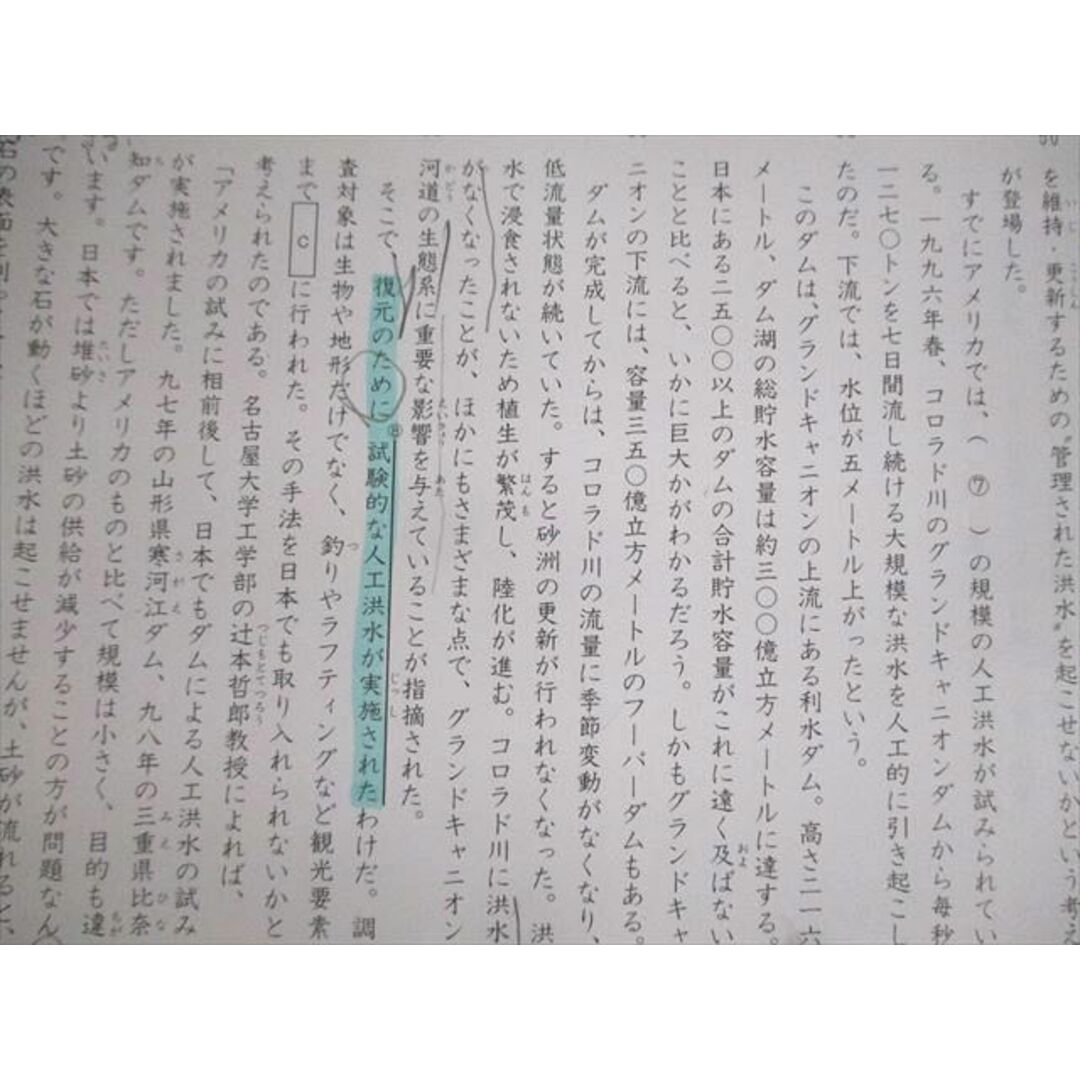 を維持・更新するための〝管理された洪水〟を起こせないかという考え
が登場した。
すでにアメリカでは、（ ⑦ ）の規模の人工洪水が試みられてい
る。一九九六年春、コロラド川のグランドキャニオンダムから毎秒
一二七〇トンを七日間流し続ける大規模な洪水を人工的に引き起こし
たのだ。下流では、水位が五メートル上がったという。
このダムは、グランドキャニオンの上流にある利水ダム。高さ二一六
メートル、ダム湖の総貯水容量は約三〇〇億立方メートルに達する。
日本にある二五〇〇以上のダムの合計貯水容量がこれに遠く及ばない
ことと比べると、いかに巨大かがわかるだろう。しかもグランドキャ
ニオンの下流には、容量三五〇億立方メートルのフーバーダムもある。
ダムが完成してからは、コロラド川の流量に季節変動がなくなり、
低流量状態が続いていた。すると砂洲の更新が行われなくなった。洪
水で浸食されないため植生が繁茂し、陸化が進む。コロラド川に洪水
がなくなったことが、ほかにもさまざまな点で、グランドキャニオン
河道の生態系に重要な影響を与えていることが指摘された。
そこで、復元のために⑧試験的な人工洪水が実施されたわけだ。調
査対象は生物や地形だけでなく、釣りやラフティングなど観光要素
まで c に行われた。その手法を日本でも取り入れられないかと
考えられたのである。名古屋大学工学部の辻本哲郎教授によれば、
「アメリカの試みに相前後して、日本でもダムによる人工洪水の試み
が実施されました。九七年の山形県寒河江ダム、九八年の三重県比奈
知ダムです。ただしアメリカのものと比べて規模は小さく、目的も違
います。日本では堆砂より土砂の供給が減少することの方が問題なん
です。大きな石が動くほどの洪水は起こせませんが、土砂が流れると、
石の表面を